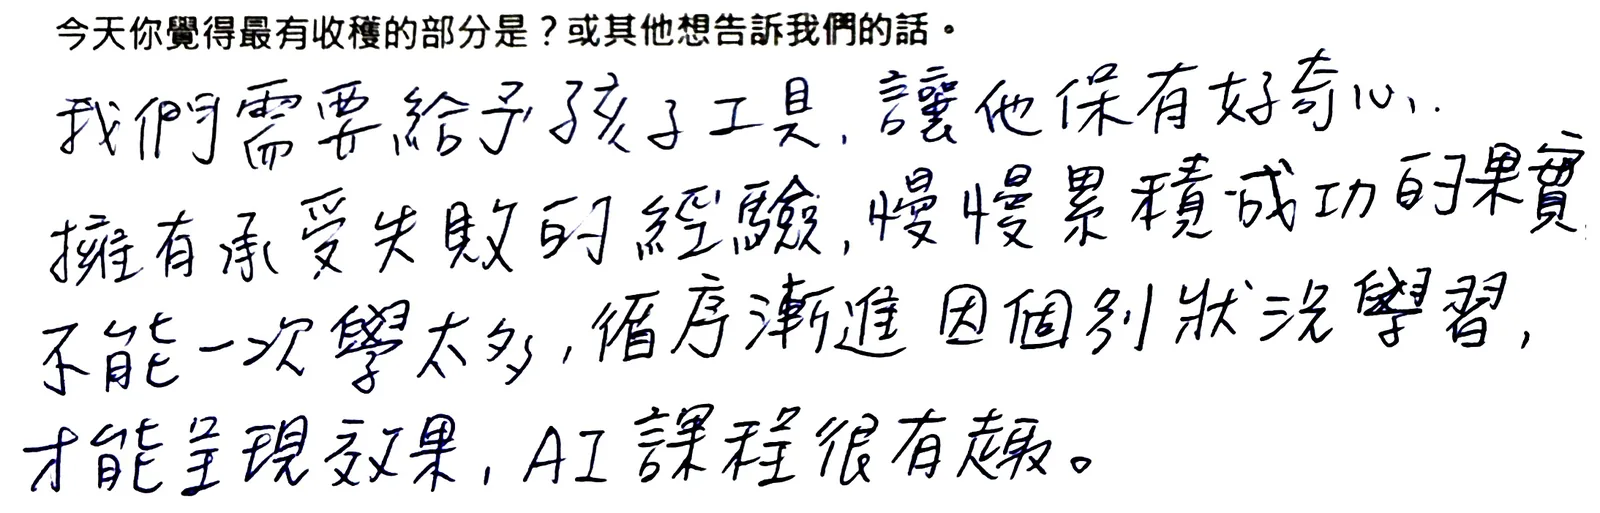 今天你覺得最有收穫的部分是？或其他想告訴我們的話。
我們需要給予孩子工具，讓他保有好奇心，
擁有承受失敗的經驗，慢慢累積成功的果實
不能一次學太多，循序漸進因個別狀況學習，
才能呈現效果，AI課程很有趣。